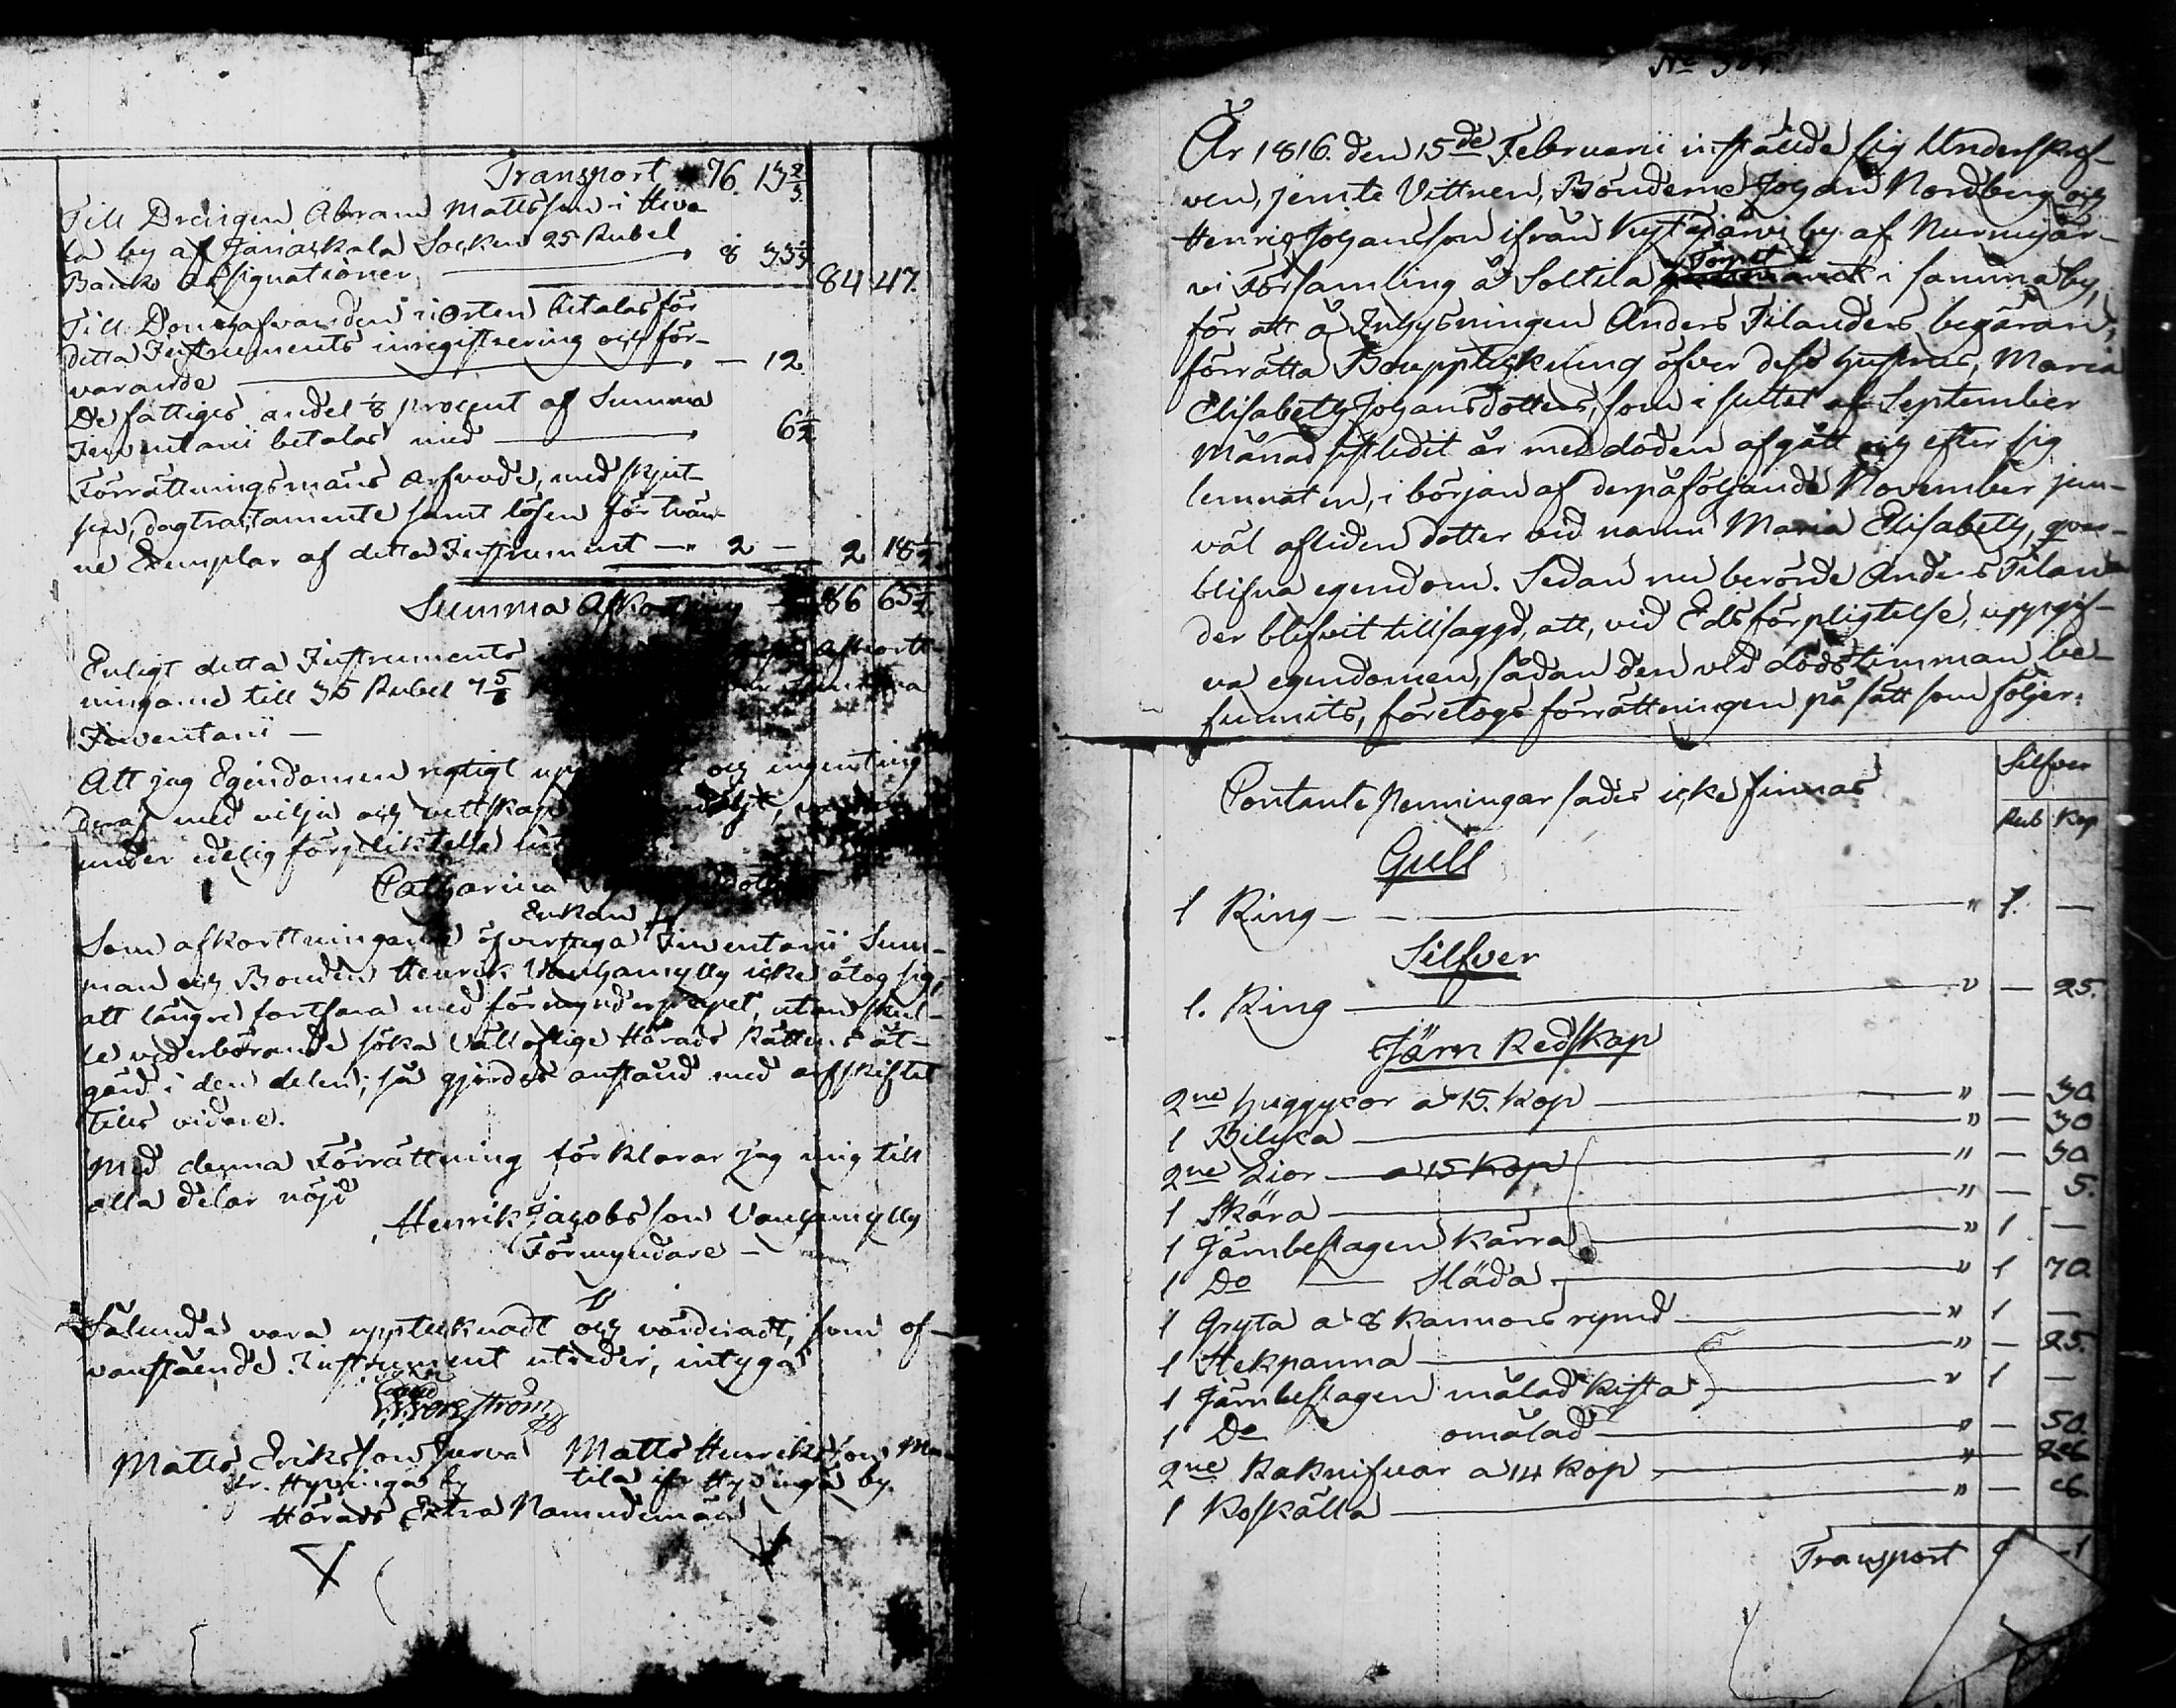 Transport 76. 13 2/3
Till Drengen Abram Mattsson i Heve
la by af Janackala Socken 25 Rubel
Banko Assignationer 8 33 1/3 84 47.
Till Domhafvanden i Orten betalas för
detta Instruments inregistrering och för-
varande — 12
De fattiges andel 1/8 procent af Summa
Inventarii betalas med 6 1/2
Förrättningsmäns arfvode, med skjut-
sen, dagtractamente samt lösen för tvän-
ne Exemplar af detta Instrument — 2 — 2 18 1/2
Summa Afkortning 86 65 1/2
Enligt detta Instruments afkortt
ningarne till 35 Rubel 7 5/8
Inventarii —
Att jag Egendomen rigtigt och ingenting
deraf med vilja och vettskap
under edelig förpliktelse
Catharina
Enkan
Som afkorttningarne öfverstiga Inventarii Sum-
man och Bonden Henrik Vanhamylly icke åtog sig,
att längre fortfara med förmynderskapet, utan skul-
le vederbörande söka Vällofliga Härads Rättens åt-
gärd i den delen; så gjordes anstånd med arfskiftet
tills vidare.
Med denna Förrättning förklarar jag mig till
alla delar nöjd
Henrik Jacobsson Vanhamylly
Förmyndare —
Sålunda vara upptecknadt och värderadt, som of-
vanstående Instrument utreder, intyga
Matts Eriksson Jurva Matts Henriksson Man-
fr. Hyvinge by tila ifr Hyvinge by.
Härads Extra Nämndemän
No
År 1816. den 15de Februarii instälde sig Underskref-
ven, jemte Vittnen, Bönderne Johan Nordberg och
Henric Johansson ifrån Kytäjärvi by af Nurmijär-
vi Församling å Soltila Torpet i samma by,
för att å Inhysningen Anders Tilanders begäran,
förrätta Bouppteckning öfver dess hustrus, Maria
Elisabeth Johansdotters, som i slutet af September
Månad sistledit år med döden afgått och efter sig
lemnat en, i början af derpåföljande November jem-
väl afliden dotter vid namn Maria Elisabeth, qvar-
blifna egendom. Sedan nu berörde Anders Tilan-
der blifvit tillsagd, att, vid Edsförpligtelse, uppgif-
va egendomen, sådan den vid dödstimman be-
funnits, företogs förrättningen på sätt som följer:
Silfver
Contante Penningar sades icke finnas
Rub Kop
Gull
1 Ring — " 1. —
Silfver
1. Ring — " — 25.
Järn Redskap
2ne huggyxor a 15. Kop — " — 30.
1 Bilyxa — " — 30
2ne Lior — a 15 Kop — " — 30
1 Skära — " — 5.
1 Järnbeslagen Kärra — " 1 —
1 Do — Släda — " 1 70.
1 Gryta a 8 Kannors rymd — " 1 —
1 Stekpanna — " — 25.
1 Järnbeslagen målad Kista — " 1 —
1 Do omålad — " — 50.
2ne Kaknifvar a 14 Kop — " — 28
1 Koskälla — " —
Transport